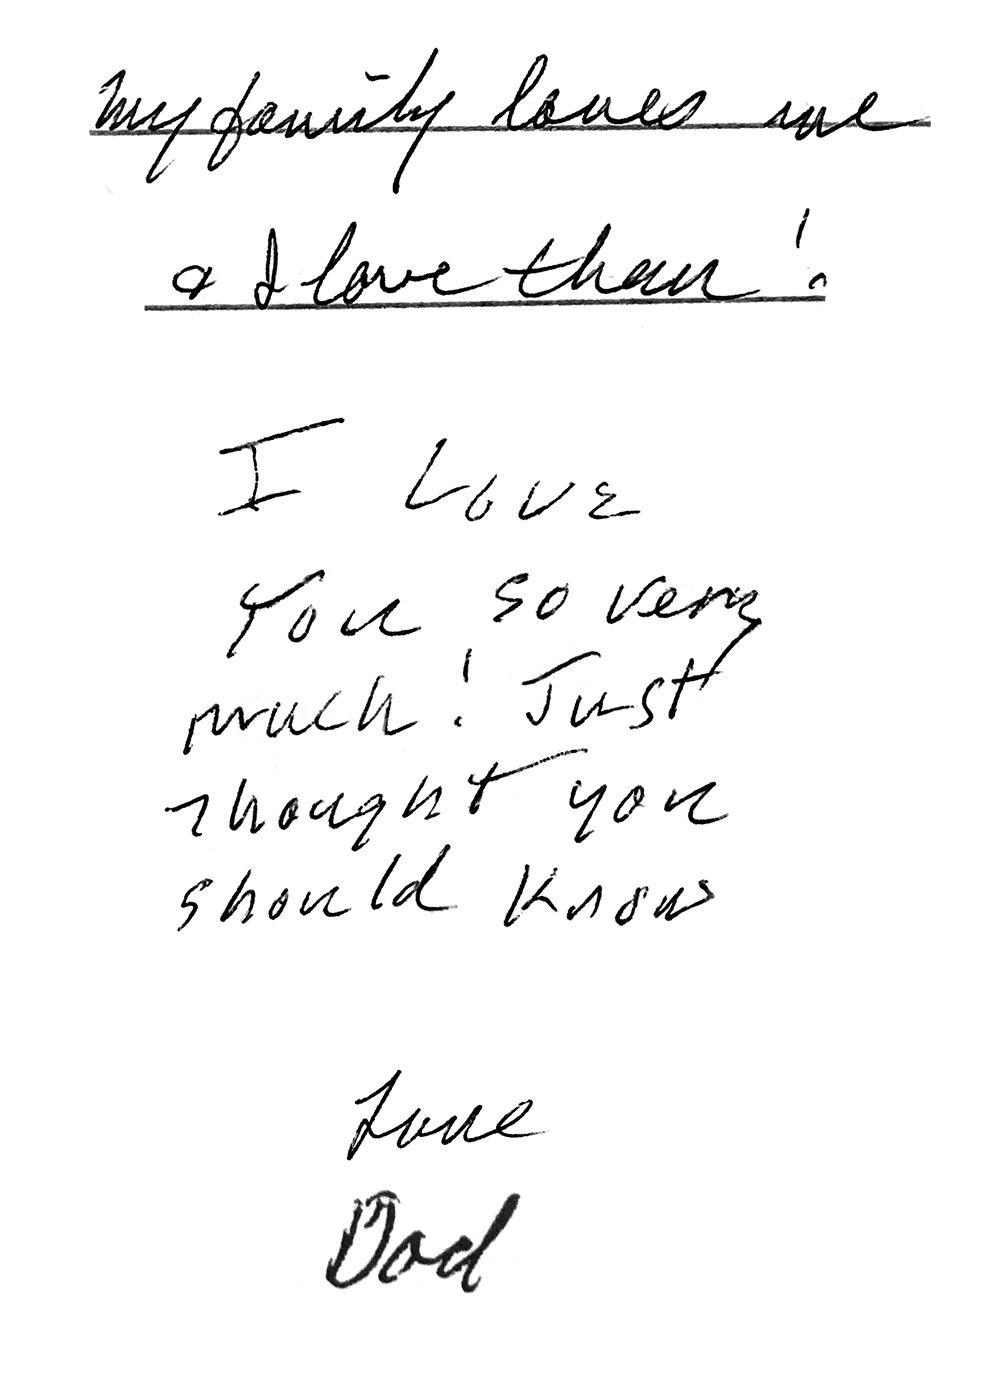 My family loves me
& I love them!
I Love
You so very
much! Just
thought you
should know
Love
Dad